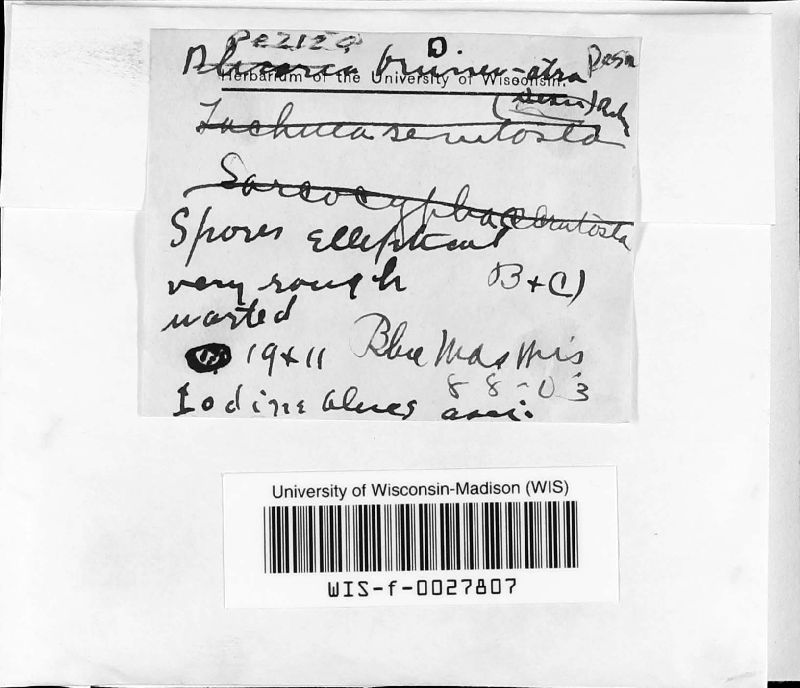 Peziza
Plicaria brunneo-atra Desm
Herbarium of the University of Wisconsin.
(Desm) Reh
Lachnea semitosta
Sarcoscypha semitosta
Spores elliptical
very rough B + C)
warted
19 x 11 Blue Mds Wis
8 8-03
Iodine blues asci.
University of Wisconsin-Madison (WIS)
WIS-f-0027807